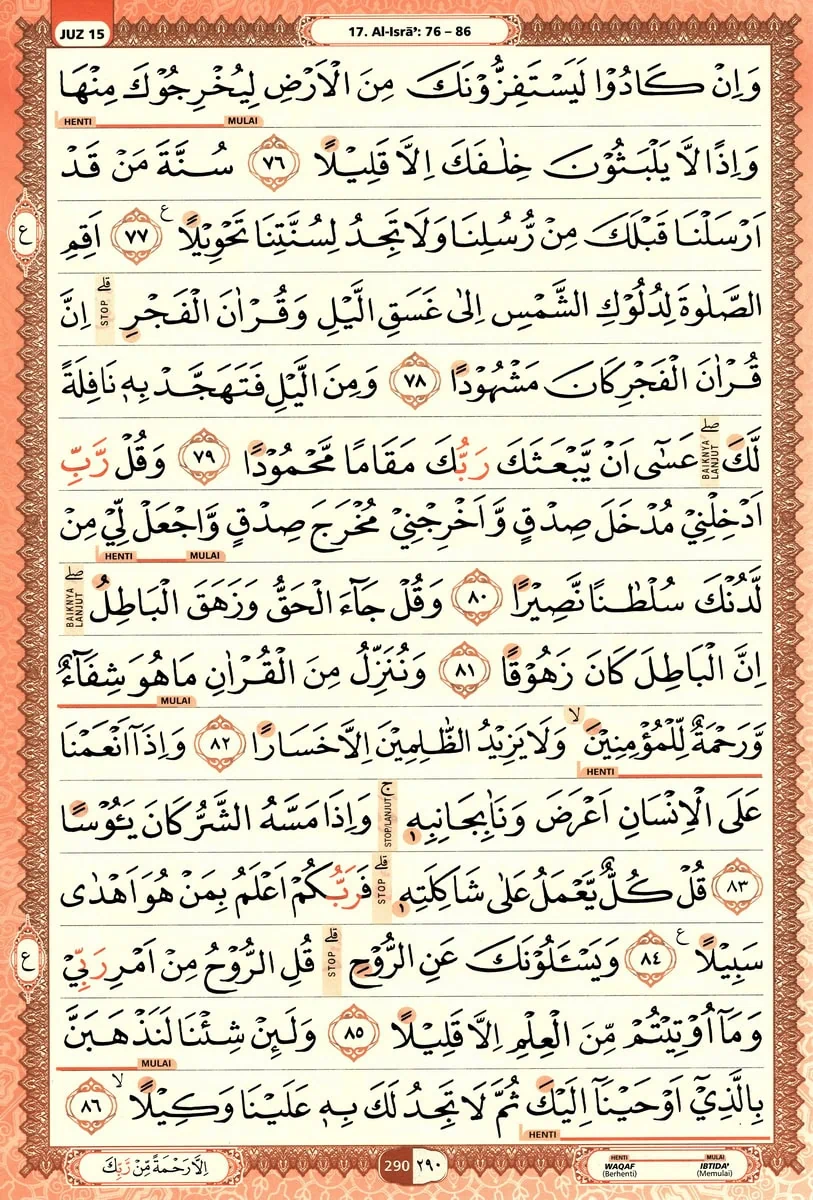 JUZ 15
17. Al-Isrā’: 76 – 86
وَاِنْ كَادُوْا لَيَسْتَفِزُّوْنَكَ مِنَ الْاَرْضِ لِيُخْرِجُوْكَ مِنْهَا
MULAI HENTI
وَاِذًا لَّا يَلْبَثُوْنَ خِلٰفَكَ اِلَّا قَلِيْلًا ٧٦ سُنَّةَ مَنْ قَدْ
ع
اَرْسَلْنَا قَبْلَكَ مِنْ رُّسُلِنَا وَلَا تَجِدُ لِسُنَّتِنَا تَحْوِيْلًا ع ٧٧ اَقِمِ
الصَّلٰوةَ لِدُلُوْكِ الشَّمْسِ اِلٰى غَسَقِ الَّيْلِ وَقُرْاٰنَ الْفَجْرِ قلے STOP اِنَّ
قُرْاٰنَ الْفَجْرِ كَانَ مَشْهُوْدًا ٧٨ وَمِنَ الَّيْلِ فَتَهَجَّدْ بِهٖ نَافِلَةً
لَّكَ صلے BAIKNYA LANJUT عَسٰٓى اَنْ يَّبْعَثَكَ رَبُّكَ مَقَامًا مَّحْمُوْدًا ٧٩ وَقُلْ رَّبِّ
اَدْخِلْنِيْ مُدْخَلَ صِدْقٍ وَّاَخْرِجْنِيْ مُخْرَجَ صِدْقٍ وَّاجْعَلْ لِّيْ مِنْ
MULAI HENTI
لَّدُنْكَ سُلْطٰنًا نَّصِيْرًا ٨٠ وَقُلْ جَاۤءَ الْحَقُّ وَزَهَقَ الْبَاطِلُ صلے BAIKNYA LANJUT
اِنَّ الْبَاطِلَ كَانَ زَهُوْقًا ٨١ وَنُنَزِّلُ مِنَ الْقُرْاٰنِ مَا هُوَ شِفَاۤءٌ
MULAI
وَّرَحْمَةٌ لِّلْمُؤْمِنِيْنَ لا وَلَا يَزِيْدُ الظّٰلِمِيْنَ اِلَّا خَسَارًا ٨٢ وَاِذَآ اَنْعَمْنَا
HENTI
عَلَى الْاِنْسَانِ اَعْرَضَ وَنَاٰ بِجَانِبِهٖ ج STOP/LANJUT وَاِذَا مَسَّهُ الشَّرُّ كَانَ يَـُٔوْسًا
٨٣ قُلْ كُلٌّ يَّعْمَلُ عَلٰى شَاكِلَتِهٖ قلے STOP فَرَبُّكُمْ اَعْلَمُ بِمَنْ هُوَ اَهْدٰى
ع
سَبِيْلًا ع ٨٤ وَيَسْـَٔلُوْنَكَ عَنِ الرُّوْحِ قلے STOP قُلِ الرُّوْحُ مِنْ اَمْرِ رَبِّيْ
وَمَآ اُوْتِيْتُمْ مِّنَ الْعِلْمِ اِلَّا قَلِيْلًا ٨٥ وَلَىِٕنْ شِئْنَا لَنَذْهَبَنَّ
MULAI
بِالَّذِيْٓ اَوْحَيْنَآ اِلَيْكَ ثُمَّ لَا تَجِدُ لَكَ بِهٖ عَلَيْنَا وَكِيْلًا لا ٨٦
HENTI
اِلَّا رَحْمَةً مِّنْ رَّبِّكَ
290 ٢٩٠
HENTI MULAI
WAQAF (Berhenti) IBTIDA' (Memulai)